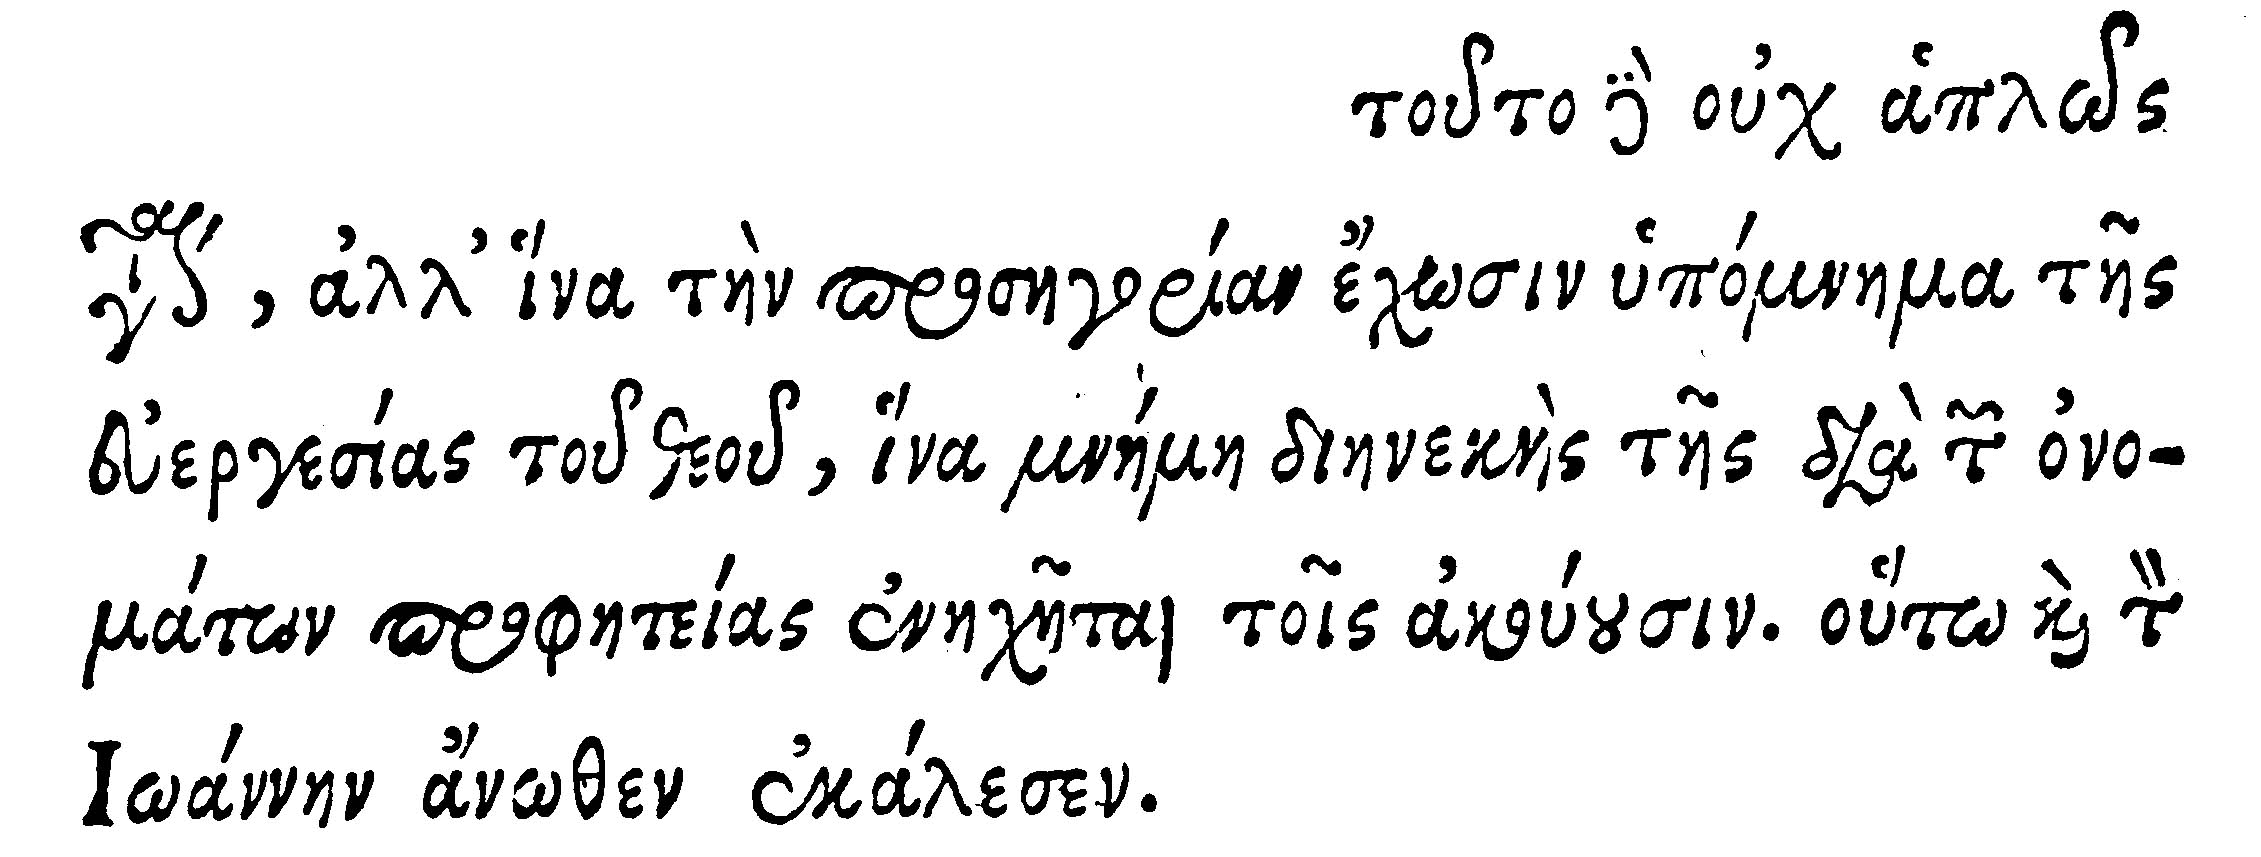 τοῦτο δὲ οὐχ ἁπλῶς
γίνεται, ἀλλ' ἵνα τὴν προσηγορίαν ἔχωσιν ὑπόμνημα τῆς
εὐεργεσίας τοῦ Θεοῦ, ἵνα μνήμη διηνεκὴς τῆς διὰ τῶν ὀνο-
μάτων προφητείας ἐνηχῆται τοῖς ἀκούουσιν. οὕτω καὶ τὸν
Ἰωάννην ἄνωθεν ἐκάλεσεν.